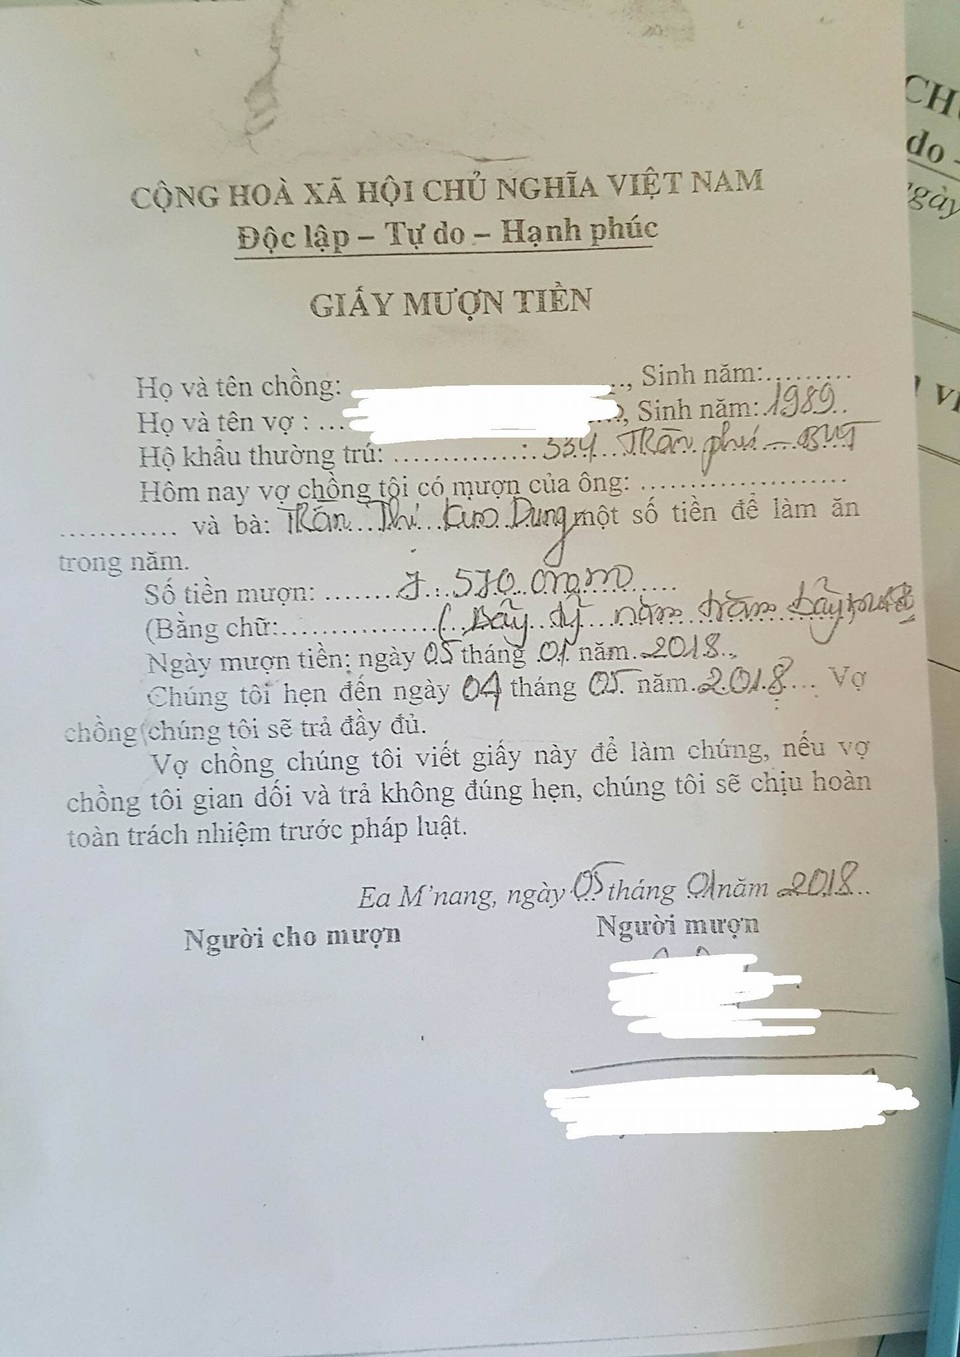 CỘNG HOÀ XÃ HỘI CHỦ NGHĨA VIỆT NAM
Độc lập – Tự do – Hạnh phúc
GIẤY MƯỢN TIỀN
Họ và tên chồng: ..., Sinh năm:.........
Họ và tên vợ : ... , Sinh năm: 1989..
Hộ khẩu thường trú: ............... 334 Trần phú – BMT
Hôm nay vợ chồng tôi có mượn của ông: .....................
............ và bà: Trần Thị Kim Dung một số tiền để làm ăn
trong năm.
Số tiền mượn: ....... 7.570.000.000 ....
(Bằng chữ:............... (Bẩy tỷ năm trăm bẩy mươi
Ngày mượn tiền: ngày 05 tháng 01 năm 2018..
Chúng tôi hẹn đến ngày 04 tháng 05 năm 2018... Vợ
chồng chúng tôi sẽ trả đầy đủ.
Vợ chồng chúng tôi viết giấy này để làm chứng, nếu vợ
chồng tôi gian dối và trả không đúng hẹn, chúng tôi sẽ chịu hoàn
toàn trách nhiệm trước pháp luật.
Ea M'nang, ngày 05 tháng 01 năm 2018..
Người cho mượn
Người mượn
CH
do -
ngày
VI